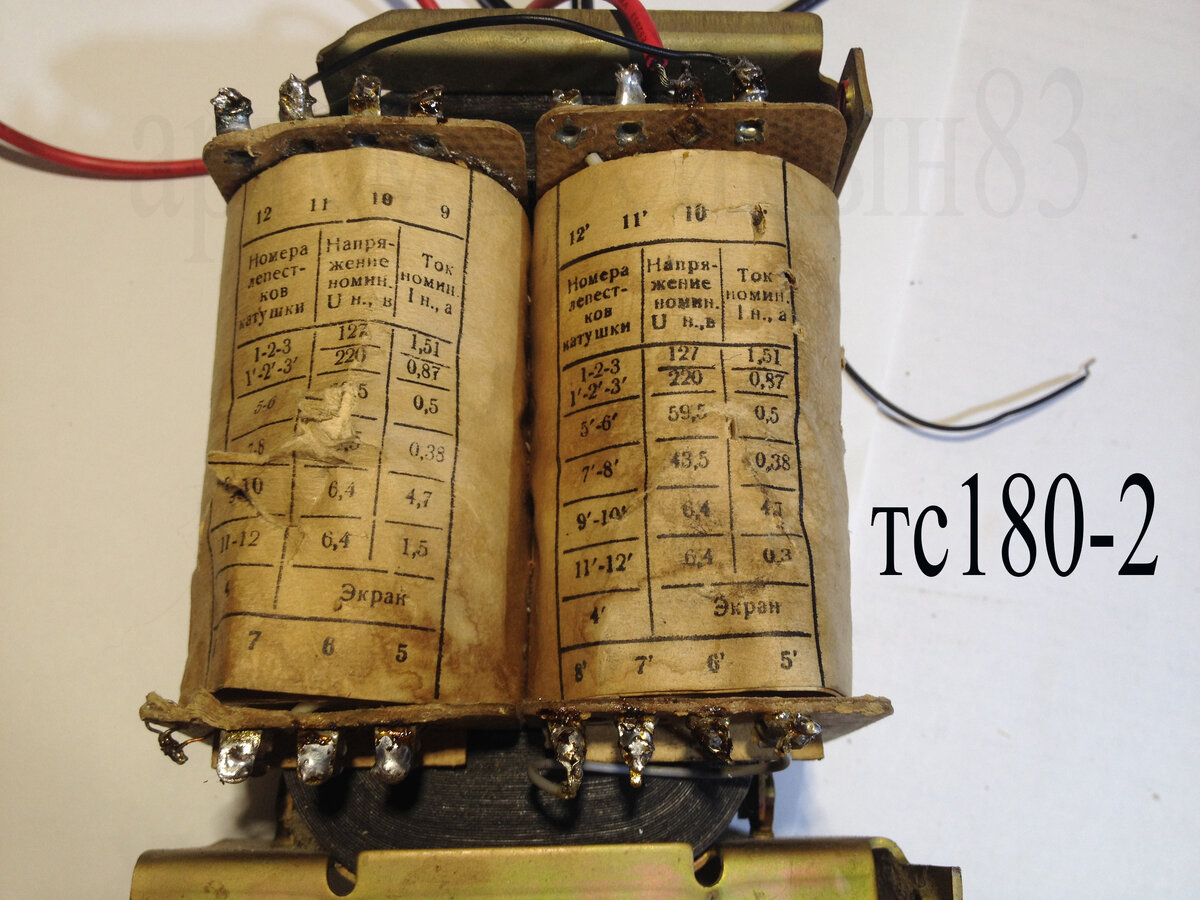 12 11 10 9
Номера лепест-ков катушки
Напря-жение номин. U н., в
Ток номин. I н., а
1-2-3 127 1,51
1'-2'-3' 220 0,87
5-6 0,5
0,38
6,4 4,7
11-12 6,4 1,5
4 Экран
7 6 5
12' 11' 10 9'
Номера лепест-ков катушки
Напря-жение номин. U н.,в
Ток номин. I н., а
1-2-3 127 1,51
1'-2'-3' 220 0,87
5'-6' 59,5 0,5
7'-8' 43,5 0,38
9'-10' 6,4
11'-12' 6,4 0,3
4' Экран
8' 7' 6' 5'
тс180-2